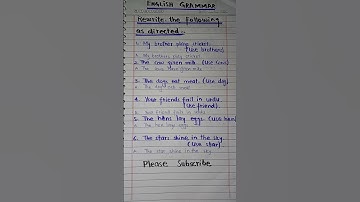 ENGLISH GRAMMAR
Rewrite the following
as directed :-
1. My brother plays cricket.
(Use brothers)
My brothers play cricket.
2. The cow gives milk. (Use cows)
The cows give milk
3. The dogs eat meat. (Use dog)
The dog eats meat
4. Your friends fail in urdu.
(Use friend).
Your friend fails in urdu
5. The hens lay eggs. (Use hen)
The hen lays eggs
6. The stars shine in the sky.
(Use star).
The star shine in the sky
Please Subscribe